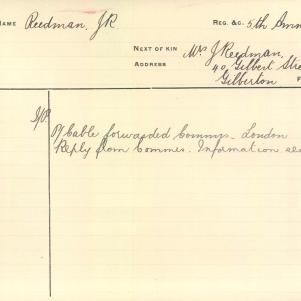 NAME Reedman, J.R. REG. &C. 5th Amm
NEXT OF KIN Mrs J Reedman,
ADDRESS 40, Gilbert Stre
Gilberton F
Cable forwarded Commrs - London
Reply from Commrs. Information